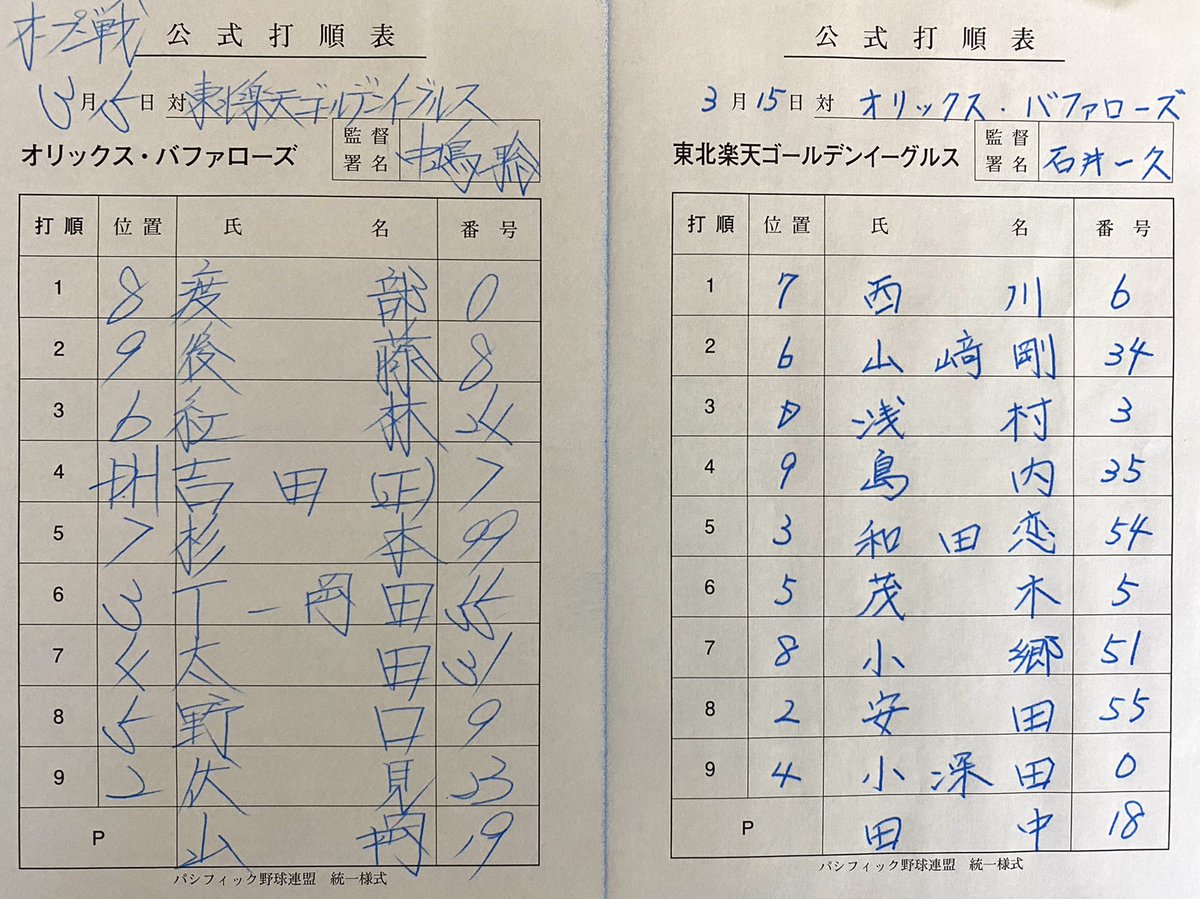 オープン戦
公式打順表
3月15日 対 東北楽天ゴールデンイーグルス
オリックス・バファローズ 監督署名 中嶋聡
打順 位置 氏名 番号
1 8 渡部 0
2 9 後藤 8
3 6 紅林 24
4 DH 吉田(正) 7
5 7 杉本 99
6 3 T-岡田 55
7 4 太田 31
8 5 野口 9
9 2 伏見 23
P 山岡 19
パシフィック野球連盟 統一様式
公式打順表
3月15日 対 オリックス・バファローズ
東北楽天ゴールデンイーグルス 監督署名 石井一久
打順 位置 氏名 番号
1 7 西川 6
2 6 山﨑剛 34
3 D 浅村 3
4 9 島内 35
5 3 和田恋 54
6 5 茂木 5
7 8 小郷 51
8 2 安田 55
9 4 小深田 0
P 田中 18
パシフィック野球連盟 統一様式